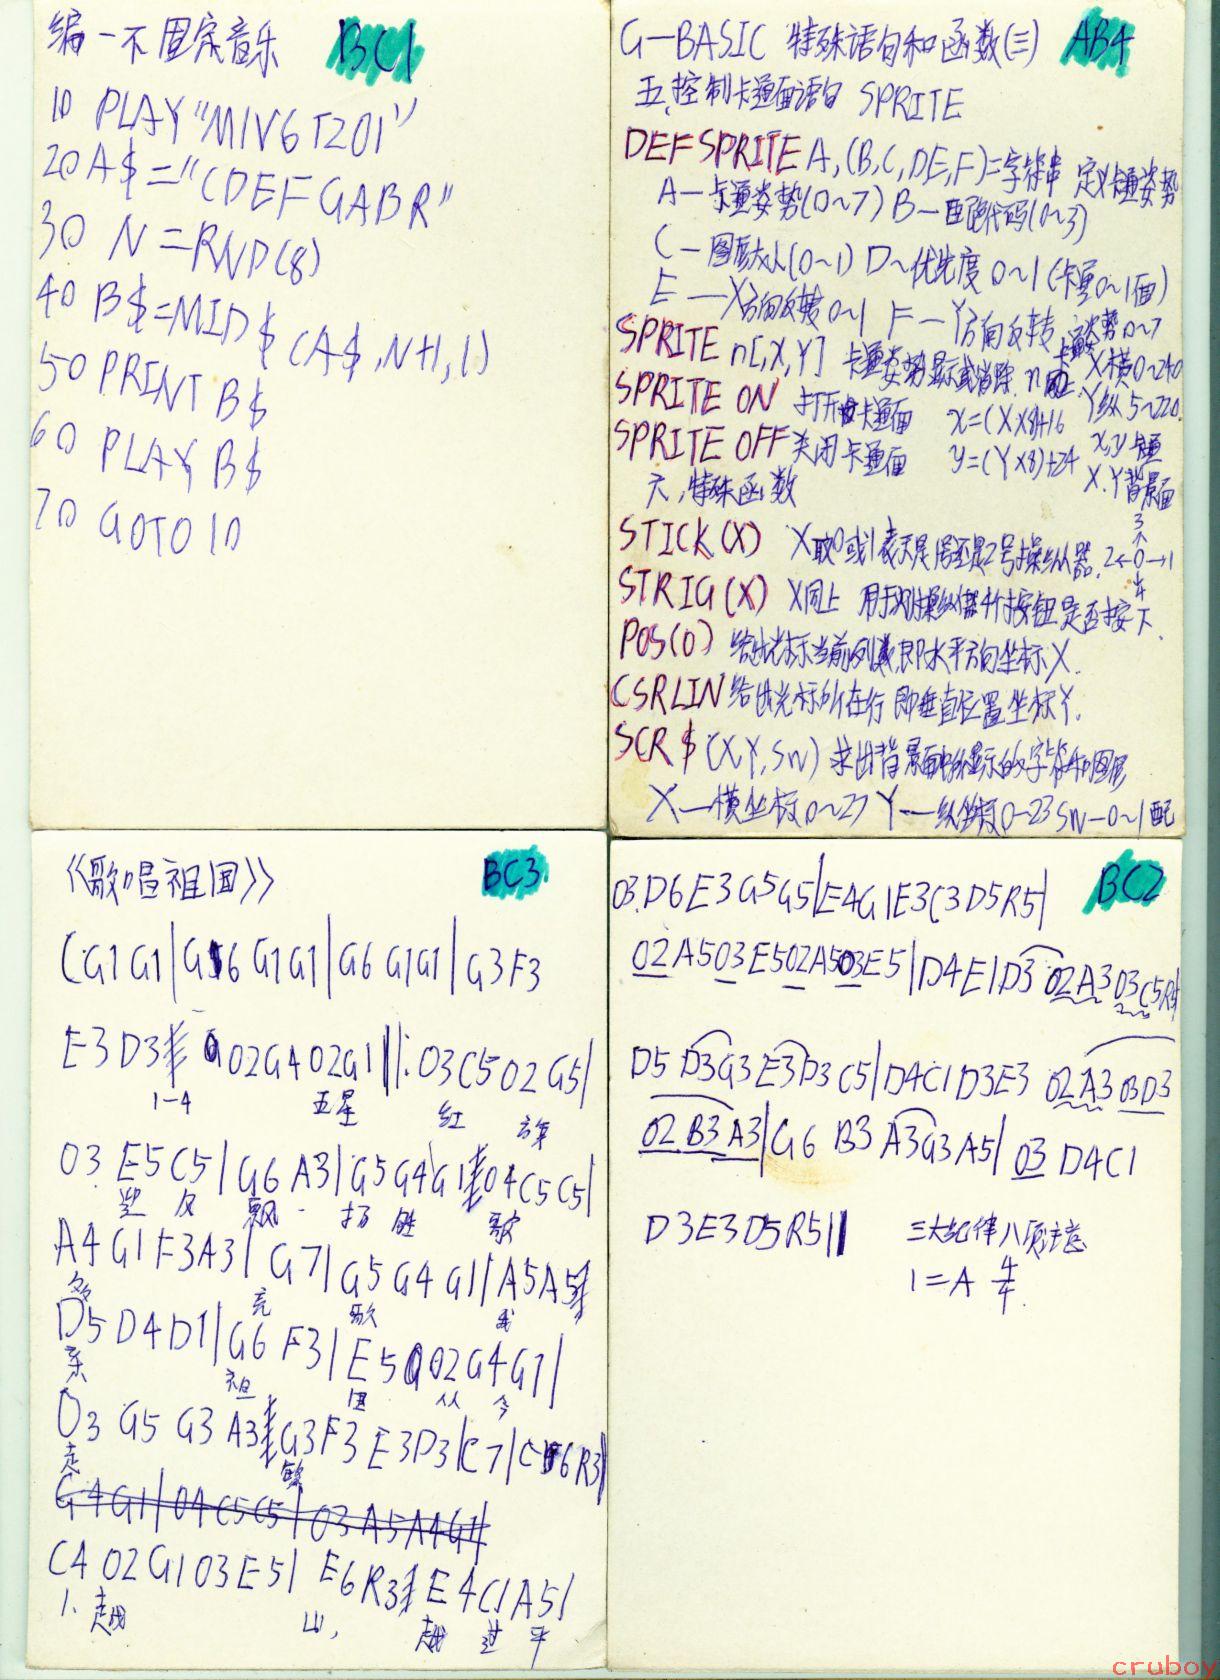 编一不固定音乐 BC1
10 PLAY "M1V6T2O1"
20 A$="CDEFGABR"
30 N=RND(8)
40 B$=MID$(A$,N+1,1)
50 PRINT B$
60 PLAY B$
70 GOTO 10
G-BASIC 特殊语句和函数(三) AB4
五.控制卡通面语句 SPRITE
DEF SPRITE A,(B,C,D,E,F)=字符串 定义卡通姿势
A—卡通姿势(0~7) B—配色代码(0~3)
C—图形大小(0~1) D~优先度 0~1(卡通0~1面)
E—X方向反转0~1 F—Y方向反转
SPRITE n[,X,Y] 卡通姿势显示或消除 n 卡通姿势0~7 X横0~240
SPRITE ON 打开卡通面 x=(X×8)+16 Y纵5~220
SPRITE OFF 关闭卡通面 y=(Y×8)+24 x,y卡通
六,特殊函数 X.Y背景面
STICK(X) X取0或1表示是1号还是2号操纵器. 3 2←0→1 4
STRIG(X) X同上 用于判操纵器4个按钮是否按下.
POS(0) 给出光标当前列数,即水平方向坐标X.
CSRLIN 给出光标所在行 即垂直位置坐标Y.
SCR$(X,Y,Sw) 求出背景面中所显示的字符和图形
X—横坐标0~27 Y—纵坐标0~23 Sw—0~1配
《歌唱祖国》 BC3
CG1G1|G6G1G1|G6G1G1|G3F3
E3D3 O2G4O2G1||:O3C5O2G5|
1-4 五星 红 旗
O3 E5C5|G6A3|G5G4G1 O4C5C5|
飘 . 扬 胜 歌
A4G1F3A3|G7|G5G4G1|A5A5
多 亮 歌 我
D5D4D1|G6F3|E5 O2G4G1|
亲 祖 国 从 今
O3 G5 G3 A3 G3F3E3D3|C7|C6R3|
走 繁
G4G1|O4C5C5|O3A5A4G1
C4O2G1O3E5|E6R3 E4C1A5|
1. 越 山, 越 过 平
O3.D6E3G5G5|E4G1E3C3D5R5| BC2
O2A5O3E5O2A5O3E5|D4E1D3O2A3O3C5R5|
D5D3G3E3D3C5|D4C1D3E3 O2A3O3D3
O2B3A3|G6 B3A3G3A5|O3 D4C1
D3E3D5R5|| 三大纪律八项注意
1=A 4/4.
crubov